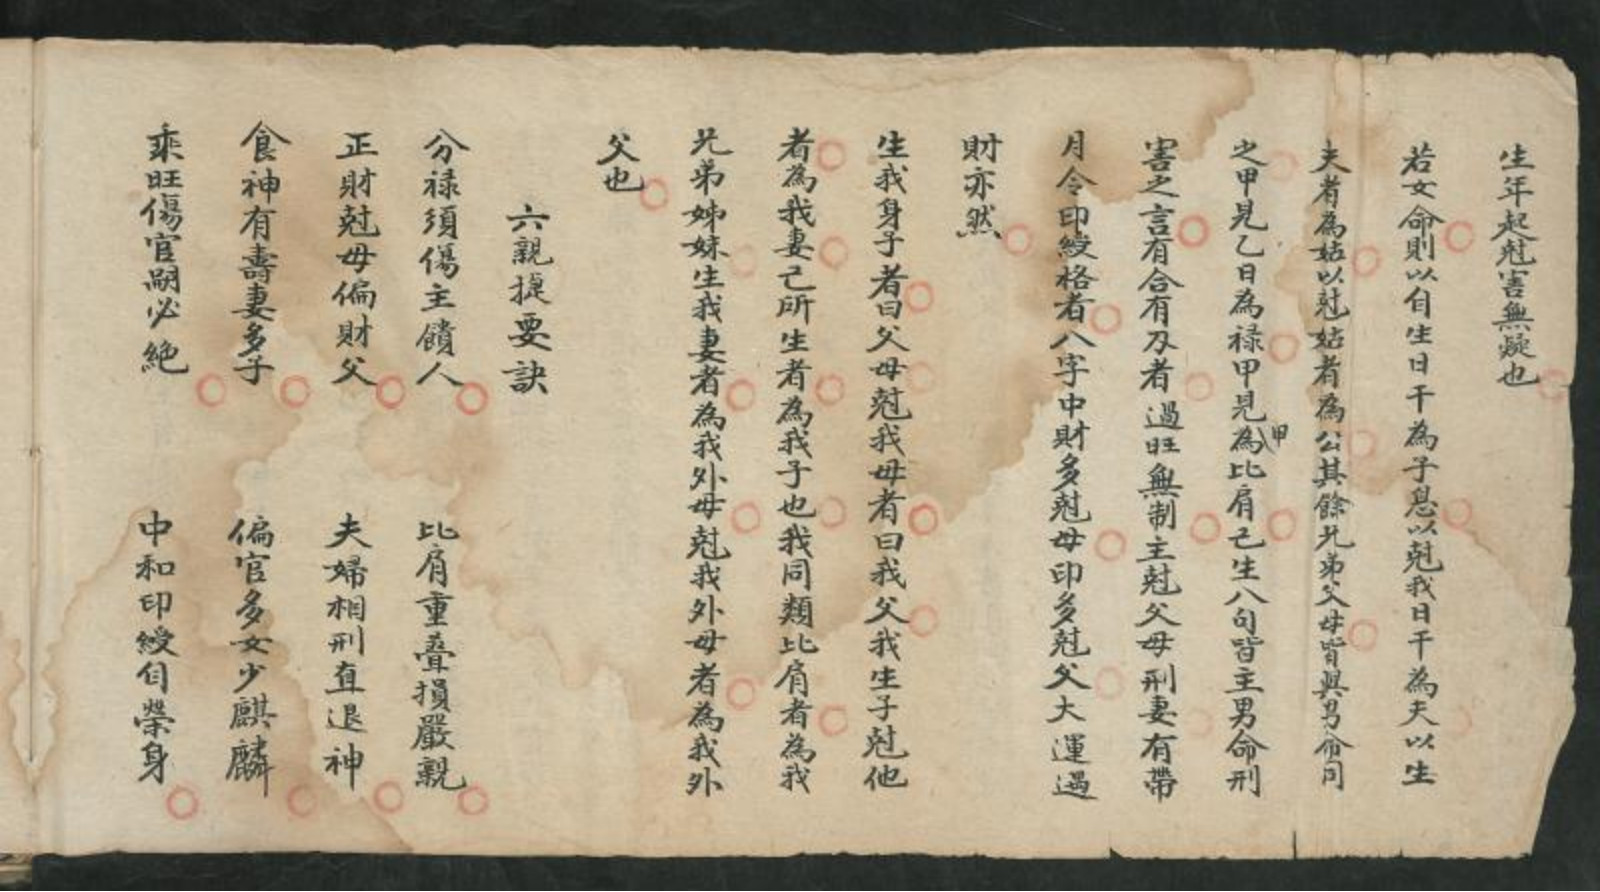 生年起尅害無疑也
若女命則以自生日干為子息以尅我日干為夭以生
夫者為姑以尅姑者為公其餘兄弟父母皆與男命同
之甲見乙日為禄甲見甲為比肩己生八句皆主男命刑
害之言有合有刃者過旺無制主尅父母刑妻有帶
月令印綬格者八字中財多尅母印多尅父大運遇
財亦然
生我身子者曰父母尅我母者曰我父我生子尅他
者為我妻己所生者為我子也我同類比肩者為我
兄弟姊妹生我妻者為我外母尅我外母者為我外
父也
六親捷要訣
分禄須傷主饋人 比肩重叠損嚴親
正財尅母偏財父 夫婦相刑直退神
食神有壽妻多子 偏官多女少麒麟
乘旺傷官嗣必絶 中和印綬自榮身